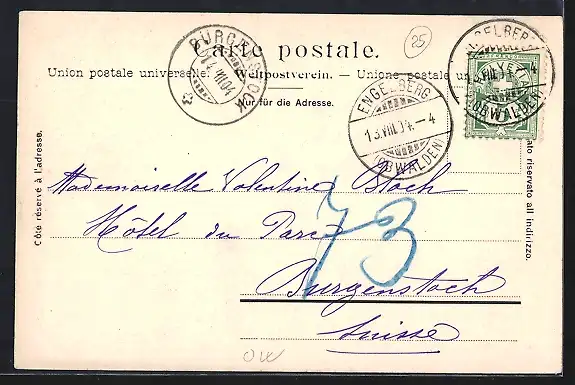 Carte postale.
25
Union postale universelle. — Weltpostverein. — Unione postale
Nur für die Adresse.
BÜRGENSTOCK
14.VIII.04
ENGELBERG
13.VIII.04.–4
(OBWALDEN)
ENGELBERG
VIII.04.–4
(OBWALDEN)
Côté réservé à l'adresse.
Lato riservato all indirizzo.
Mademoiselle Valentine Bloch
Hôtel du Parc
73
Burgenstock
Suisse
OW